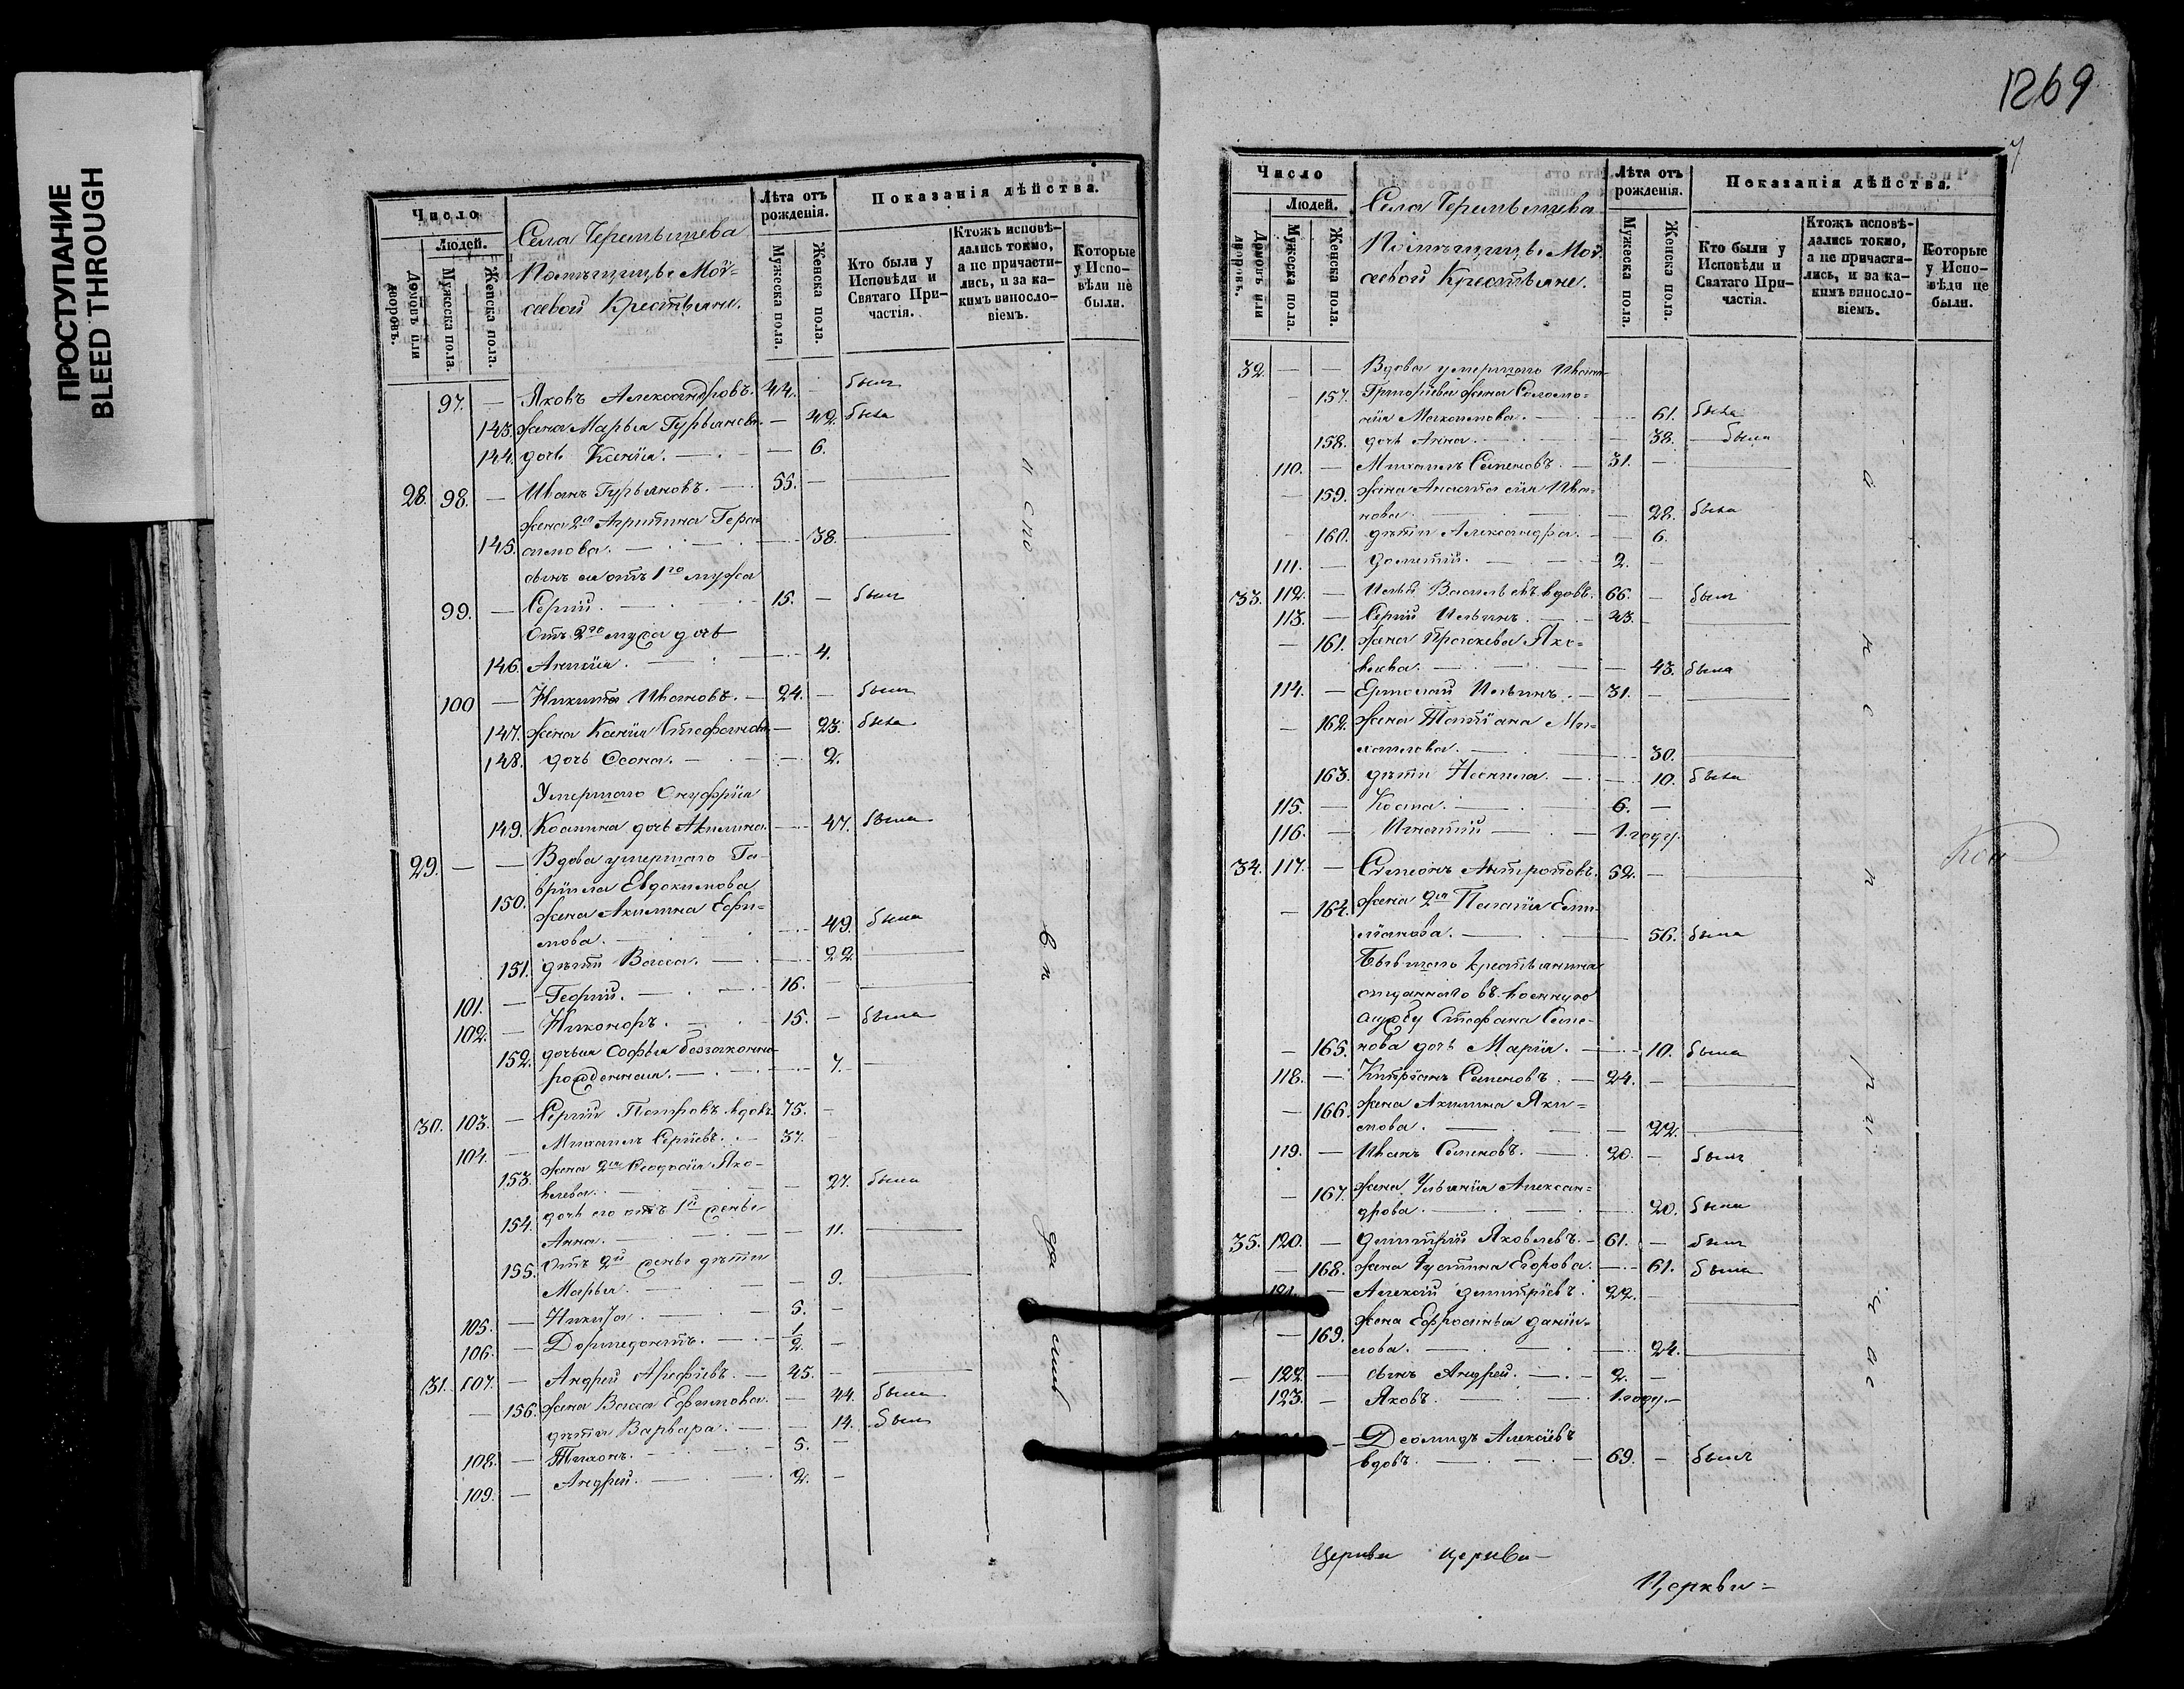 ПРОСТУПАНИЕ
BLEED THROUGH
1269
Число
Людей.
Домовъ или дворовъ.
Мужеска пола.
Женска пола.
Села
Помѣщицы
Крестьяне.
Лѣта отъ рожденія.
Мужеска пола.
Женска пола.
Показанія дѣйства.
Кто были у Исповѣди и Святаго Причастія.
Ктожъ исповѣдались токмо, а не причастились, и за какимъ винословіемъ.
Которые у Исповѣди не были.
97. — Яковъ Александровъ. 44. — былъ
143. жена Марья Гурьянова. — 42. была
144. дочь Ксенія. — 6.
28. 98. — Иванъ Гурьяновъ. 55. —
жена 2я Агрипина Гера-
145. симова. — 38.
сынъ ея отъ 1го мужа
99. — Сергій. 15. — былъ
Отъ 2го мужа дочь
146. — 4.
100 — Никита Ивановъ. 24. — былъ
147. жена Ксенія Стефанова — 23. была
148. дочь — 2.
Умершаго Онуфрія
149. Козмина дочь Акилина. — 47. была
29. — — Вдова умершаго Га-
150. вріила Евдокимова
жена Акилина Ефи-
мова. — 49. была
151. дѣти Васса. — 22
101. — Георгій. 16. —
102. — Никоноръ. 15. — была
152. дочь ея Софья беззаконно-
рожденная. — 7. —
30. 103. — Сергій Петровъ вдовъ 75. —
104. — Михаилъ Сергіевъ. 37. —
153. жена 2я Яко-
влева. — 27. была
154. дочь его отъ 1й жены
Анна. — 11.
155. Отъ 2й жены дѣти
Марья. — 9.
105. — Никита. 5. —
106. — Дормедонтъ. 1/2. —
31. 107. — Андрей Арефіевъ. 45. —
— 156. жена Васса Ефимова. — 44. была
дѣти Варвара. — 14. была
108. — Тихонъ. 5. —
109. — Андрей. 2. —
испо
вѣ
да
лись
7
Число
Людей.
Домовъ или дворовъ.
Мужеска пола.
Женска пола.
Села
Помѣщицы
Крестьяне.
Лѣта отъ рожденія.
Мужеска пола.
Женска пола.
Показанія дѣйства.
Кто были у Исповѣди и Святаго Причастія.
Ктожъ исповѣдались токмо, а не причастились, и за какимъ винословіемъ.
Которые у Исповѣди не были.
32. — — Вдова умершаго Ивана
— 157. Григорьева жена Соломо-
нія Максимова. — 61. была
158. дочь Анна. — 38. — была
110. — Михаилъ Семеновъ. 31. —
— 159. жена Анастасія Ива-
нова. — 28. была
— 160. дѣти Александра. — 6.
111. — Дометій. 2. —
33. 112. — Илья Васильевъ вдовъ. 66. — былъ
113. — Сергій Ильинъ. 43. —
— 161. жена Яко-
влева. — 43. была
114. — Ермолай Ильинъ. 31. —
— 162. жена Татіана Ми-
хайлова. — 30.
163. дѣти Неонила. — 10. была
115. — Косма. 6. —
116. — Игнатій — 1. году.
34. 117. — Симеонъ Антроповъ. 52. —
— 164. жена 2я Пелагія Еми-
ліанова. — 56. была
Бывшаго крестьянина
отданнаго въ военную
службу Стефана Семе-
— 165. нова дочь Марія. — 10. была
118. — Кипріанъ Семеновъ. 24. —
— 166. жена Акилина Яки-
мова. — 22.
119. — Иванъ Семеновъ. 20. — былъ
— 167. жена Ульянія Алексан-
дрова. — 20. была
35. 120. — Димитрій Яковлевъ. 61. — былъ
— 168. жена Устина Егорова. — 61. была
121. — Алексій Димитріевъ. 22. —
— 169. жена Ефросинья Дани-
лова. — 24.
— 122. — сынъ Андрей. 2. —
123. — Яковъ. 1. году. —
— Деомидъ Алексіевъ
вдовъ. 69. — былъ
Церкви церкви
Церкви